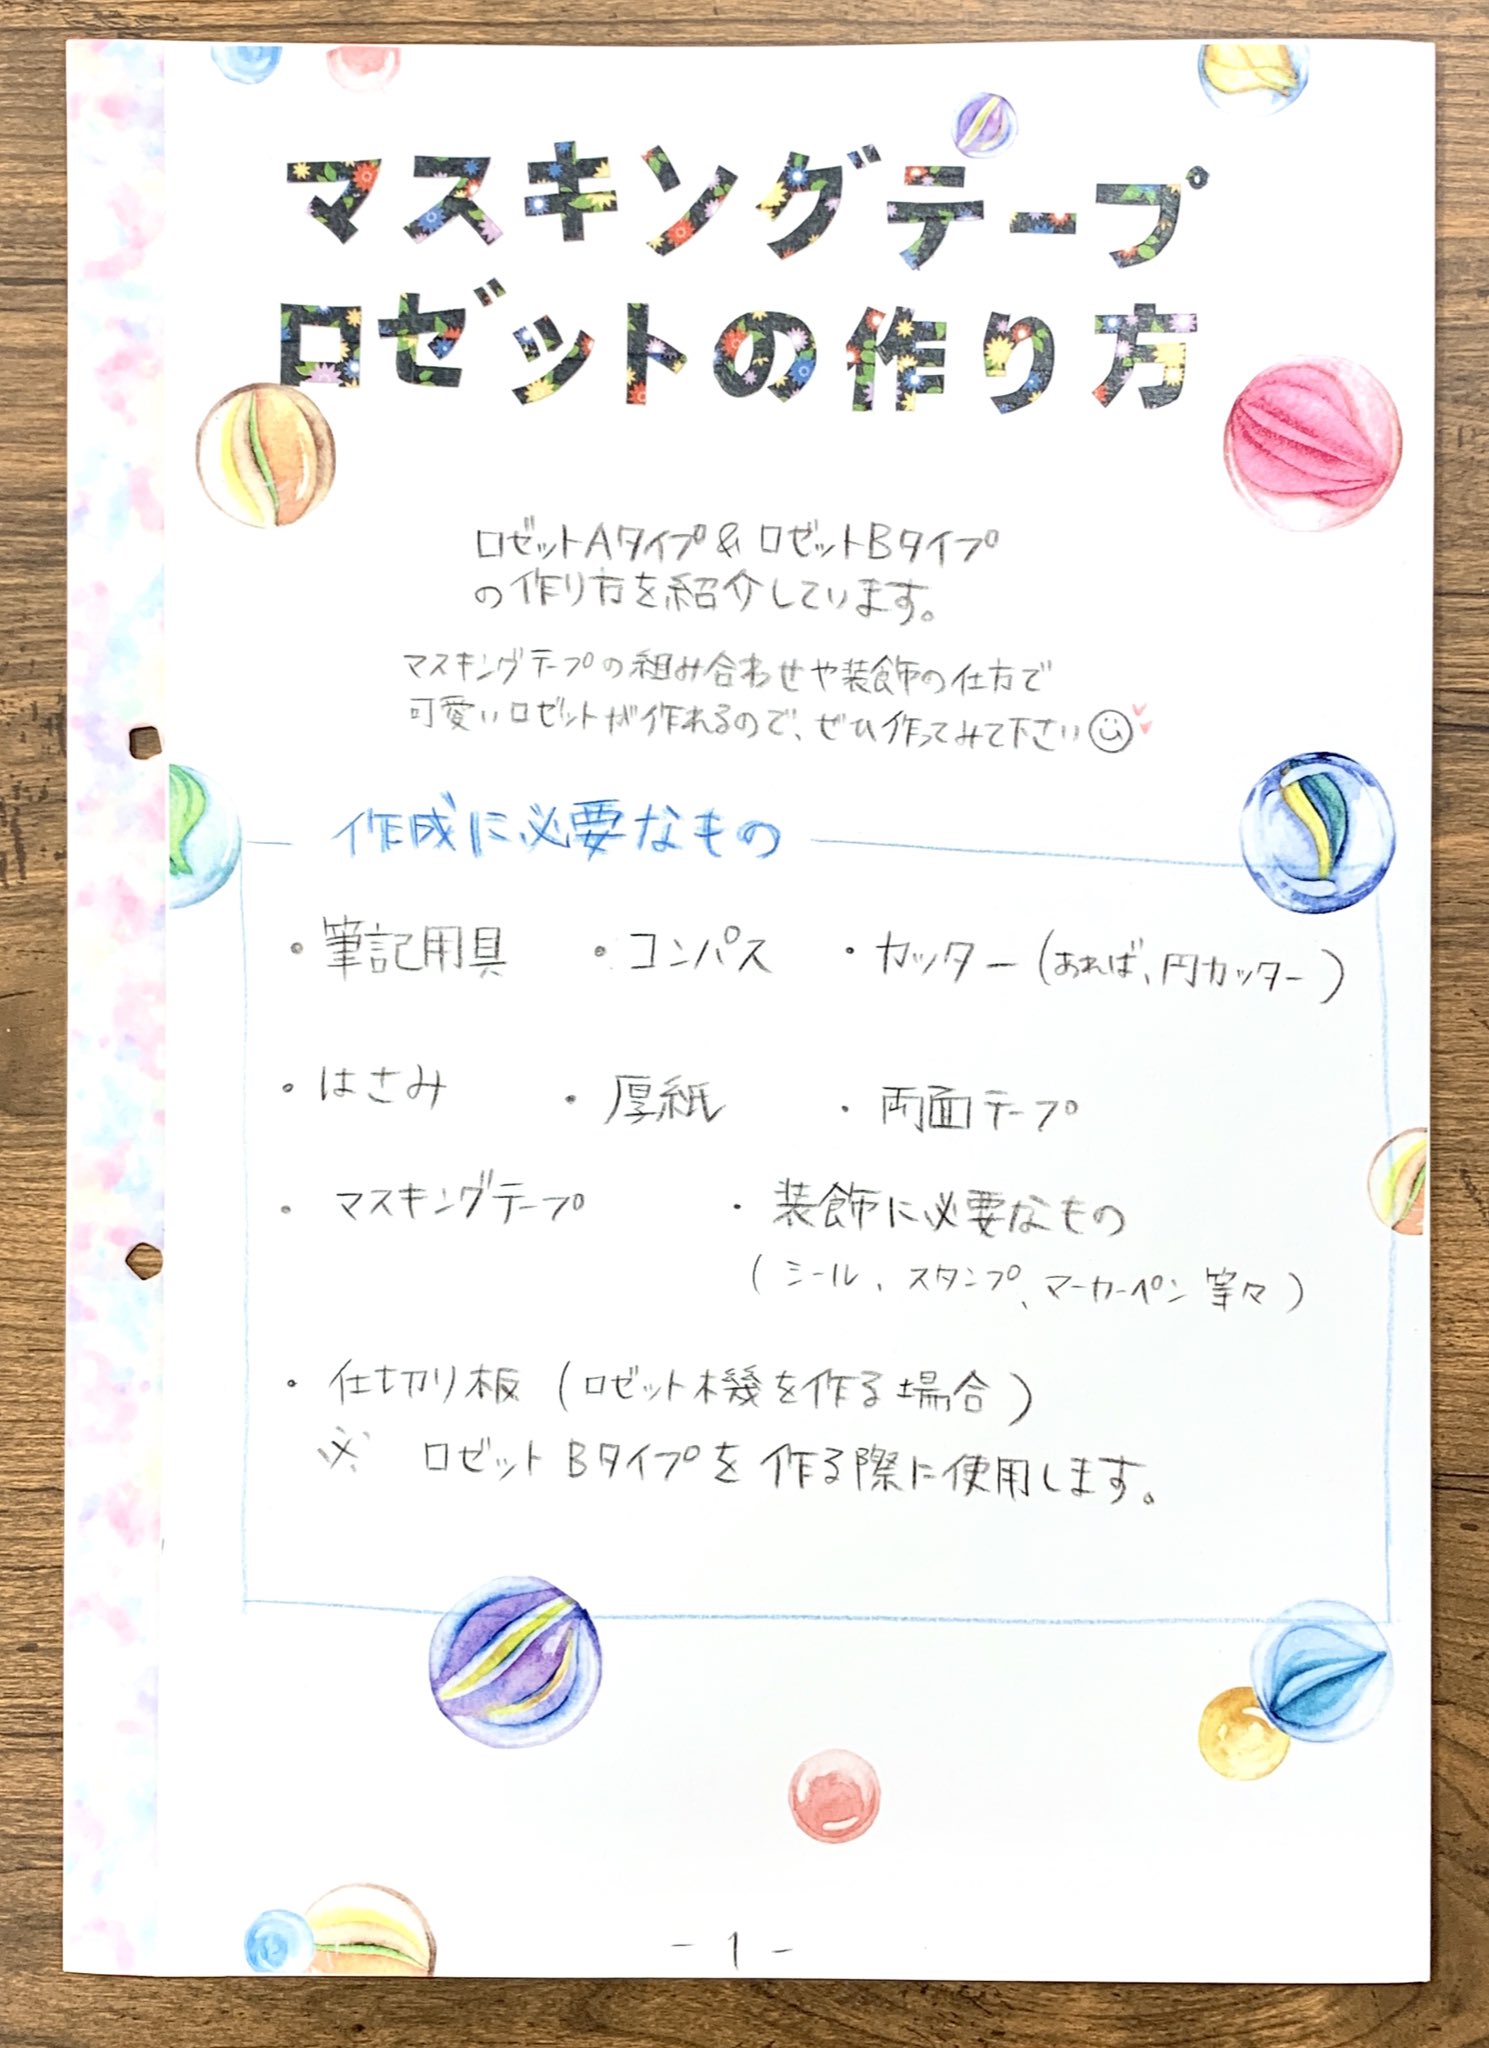 マスキングテープ
ロゼットの作り方
ロゼットAタイプ&ロゼットBタイプ
の作り方を紹介しています。
マスキングテープの組み合わせや装飾の仕方で
可愛いロゼットが作れるので、ぜひ作ってみて下さい
作成に必要なもの
・筆記用具 ・コンパス ・カッター(あれば、円カッター)
・はさみ ・厚紙 ・両面テープ
・マスキングテープ ・装飾に必要なもの
(シール、スタンプ、マーカーペン等々)
・仕切り板(ロゼット機を作る場合)
※ ロゼットBタイプを作る際に使用します。
- 1 -